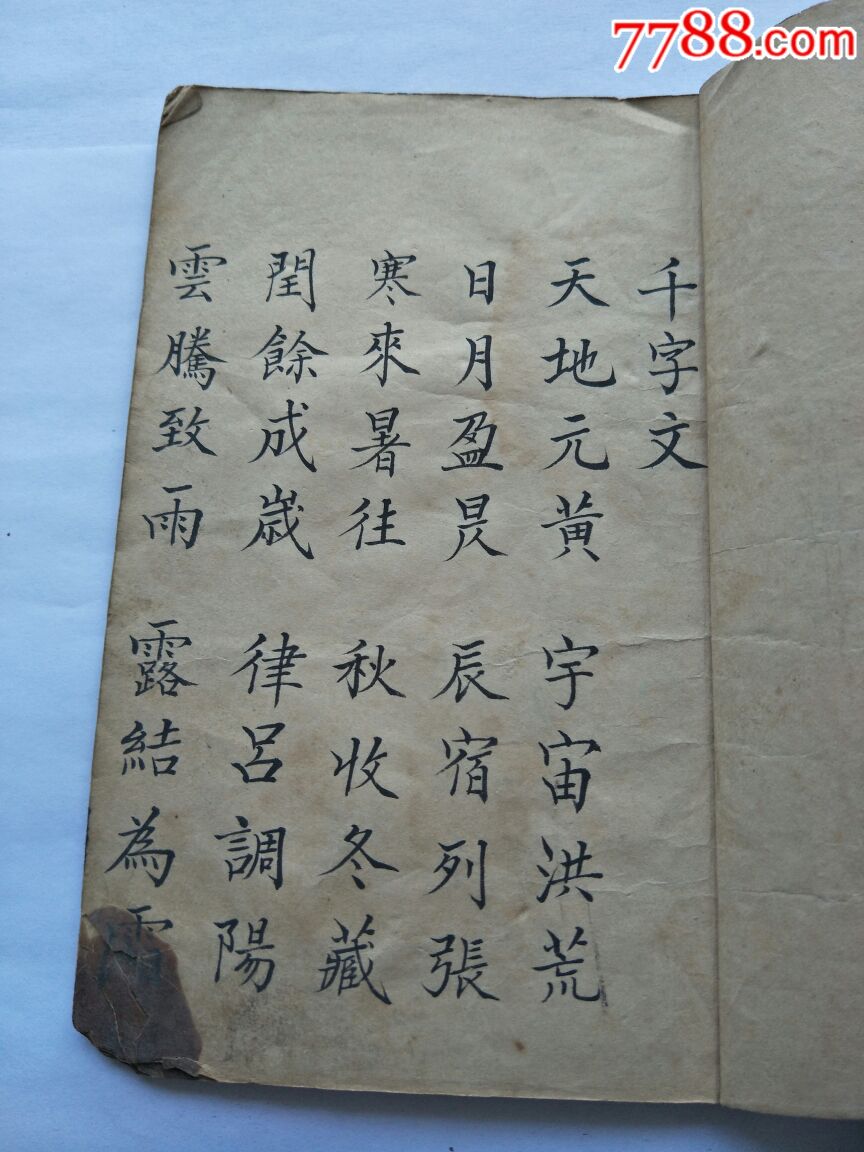 7788.com
千字文
天地元黃 宇宙洪荒
日月盈昃 辰宿列張
寒來暑往 秋收冬藏
閏餘成嵗 律呂調陽
雲騰致雨 露結為霜